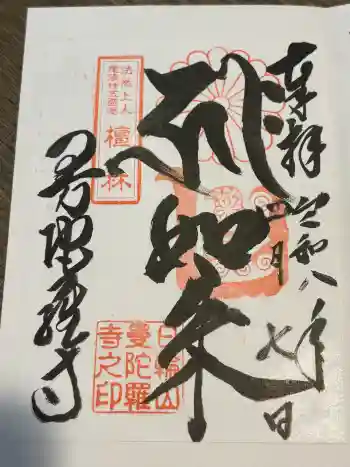 奉拝
令和八年
四月七日
弥如来
曼陀羅寺
法然上人
檀林
日輪山
曼陀羅
寺之印